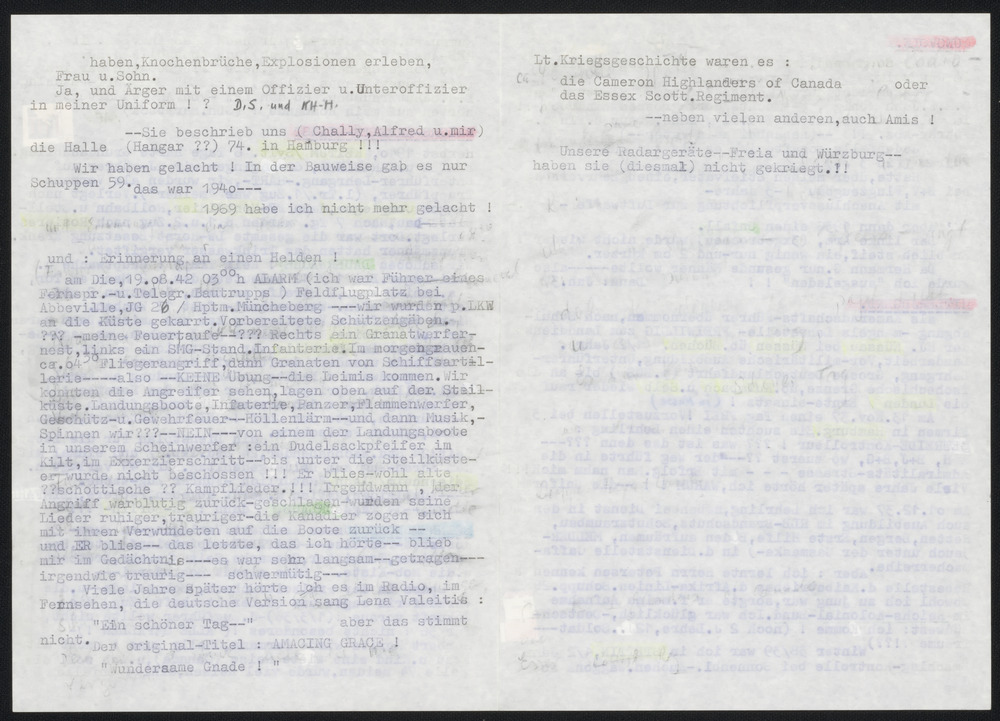 haben,Knochenbrüche,Explosionen erleben,
Frau u.Sohn.
Ja, und Ärger mit einem Offizier u.Unteroffizier
in meiner Uniform ! ? D.S. und KH-M.
--Sie beschrieb uns ( Chally,Alfred u.mir)
die Halle (Hangar ??) 74. in Hamburg !!!
Wir haben gelacht ! In der Bauweise gab es nur
Schuppen 59. das war 194o---
1969 habe ich nicht mehr gelacht !
und : Erinnerung an einen Helden !
am Die,19.o8.42 03ºº h ALARM (ich war Führer eines
Fernspr.-u.Telegr.Bautrupps ) Feldflugplatz bei
Abbeville,JG 26 / Hptm.Müncheberg ---wir wurden p.LKW
an die Küste gekarrt.Vorbereitete Schützengäben.
??? -meine Feuertaufe--??? Rechts ein Granatwerfer-
nest,links ein SMG-Stand.Infanterie.Im morgengrauen-
ca.o4³⁰ Fliegerangriff,dann Granaten von Schiffsartil-
lerie----also --KEINE Übung--die Leimis kommen.Wir
konnten die Angreifer sehen,lagen oben auf der Steil-
küste.Landungsboote,Infaterie,Panzer,Flammenwerfer,
Geschütz-u.Gewehrfeuer--Höllenlärm--und dann Musik,-
Spinnen wir???--NEIN---von einem der Landungsboote
in unserem Scheinwerfer :ein Dudelsackpfeifer im
Kilt,im Exxerzierschritt--bis unter die Steilküste-
er wurde nicht beschossen !!! Er blies-wohl alte
??schottische ?? Kampflieder.!!! Irgendwann , der
Angriff warblutig zurück-geschlagen-wurden seine
Lieder ruhiger,trauriger-die Kanadier zogen sich
mit ihren Verwundeten auf die Boote zurück --
und ER blies-- das letzte, das ich hörte-- blieb
mir im Gedächtnis---es war sehr langsam--getragen---
irgendwie traurig--- schwermütig---
Viele Jahre später hörte ich es im Radio, im
Fernsehen, die deutsche Version sang Lena Valeitis :
"Ein schöner Tag--" aber das stimmt
nicht. Der original-Titel : AMACING GRACE !
"Wundersame Gnade ! "
Lt.Kriegsgeschichte waren es :
die Cameron Highlanders of Canada oder
das Essex Scott.Regiment.
--neben vielen anderen,auch Amis !
Unsere Radargeräte--Freia und Würzburg--
haben sie (diesmal) nicht gekriegt.!!